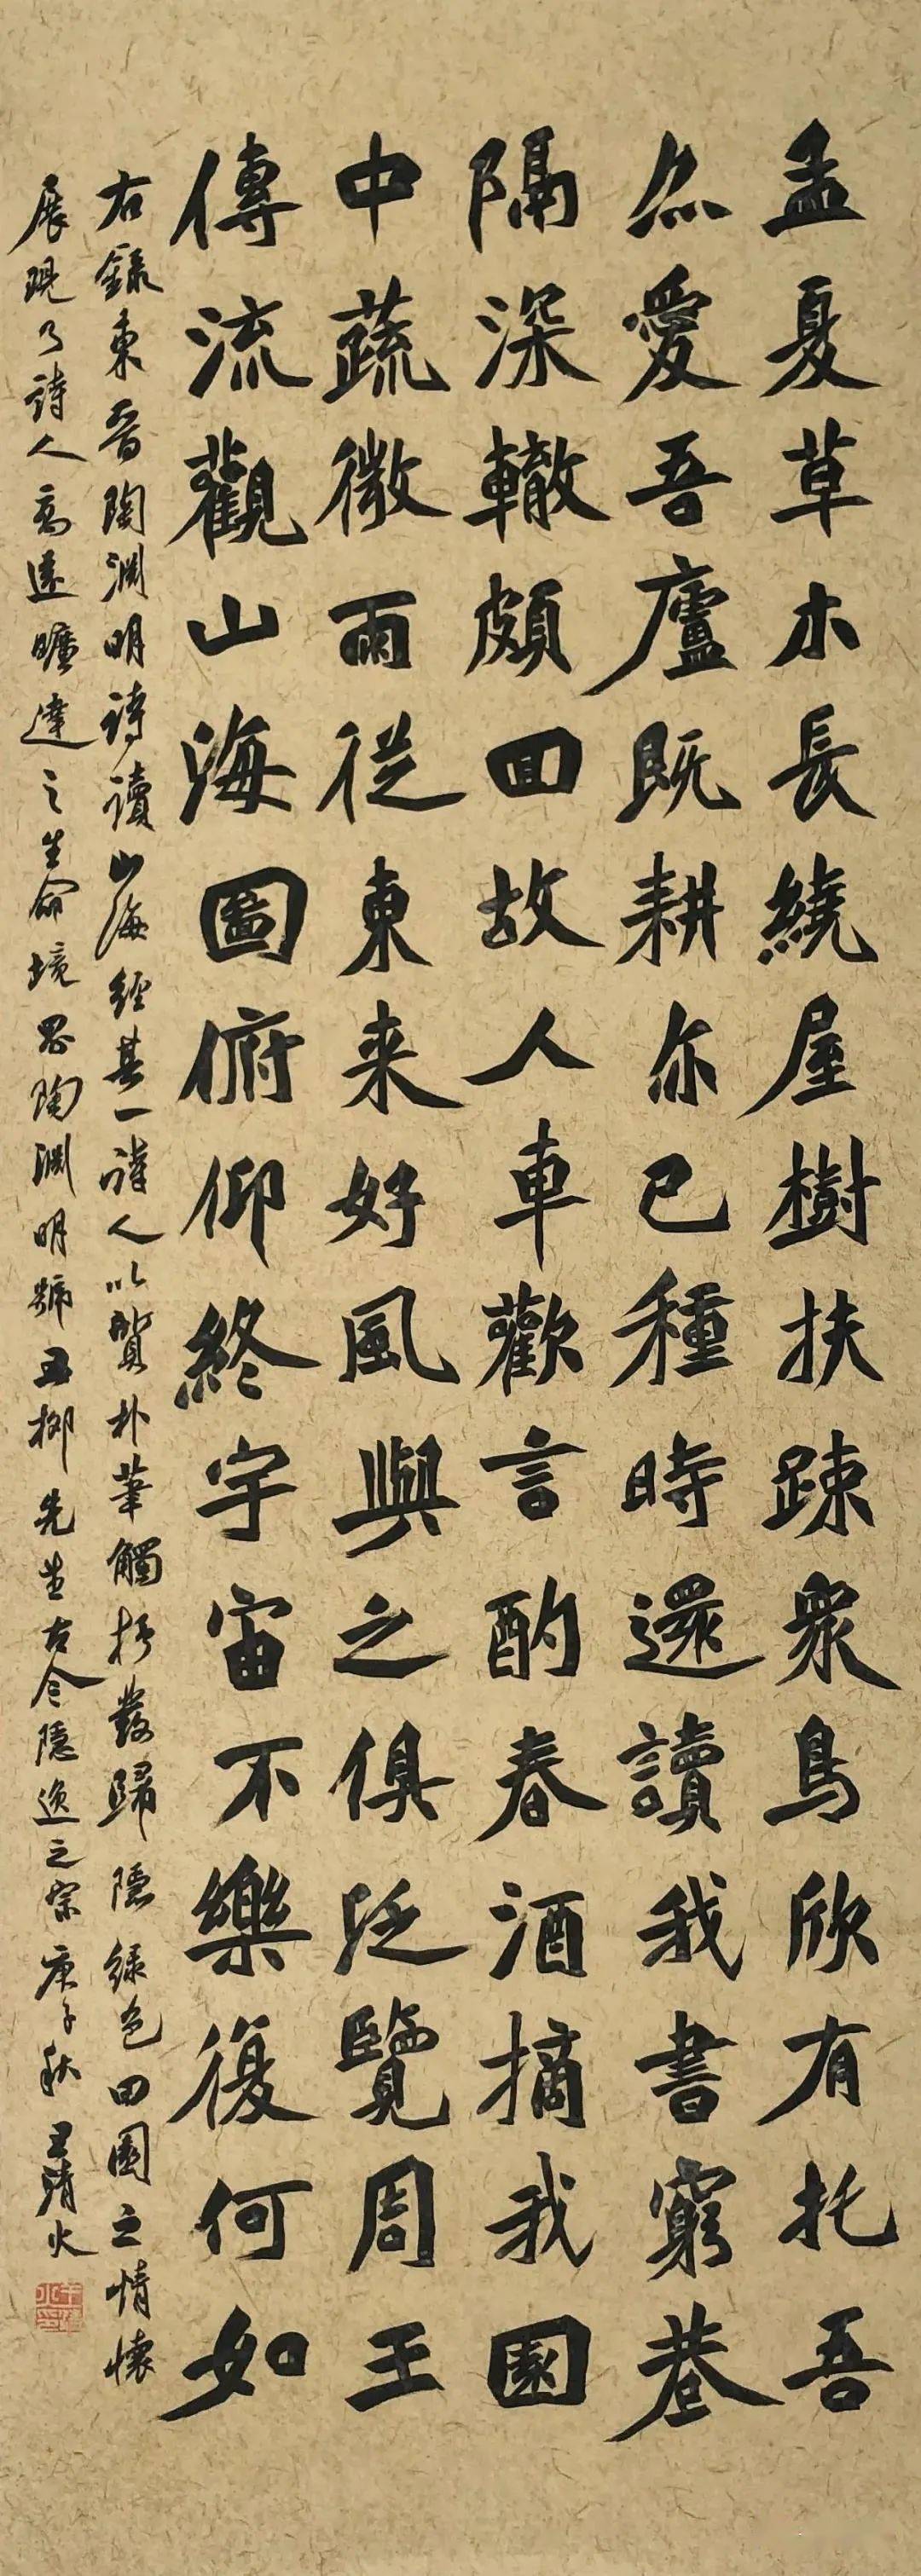 孟夏草木長繞屋樹扶踈衆鳥欣有托吾
亦愛吾廬既耕亦已種時還讀我書窮巷
隔深轍頗回故人車歡言酌春酒摘我園
中蔬微雨從東来好風與之俱泛覽周王
傳流觀山海圖俯仰終宇宙不樂復何如
右録東晋陶渊明詩讀山海經其一詩人以質朴筆觸抒發歸隱緑色田園之情懷
展現了詩人高遠曠達之生命境界陶渊明號五柳先生古今隱逸之宗庚子秋王